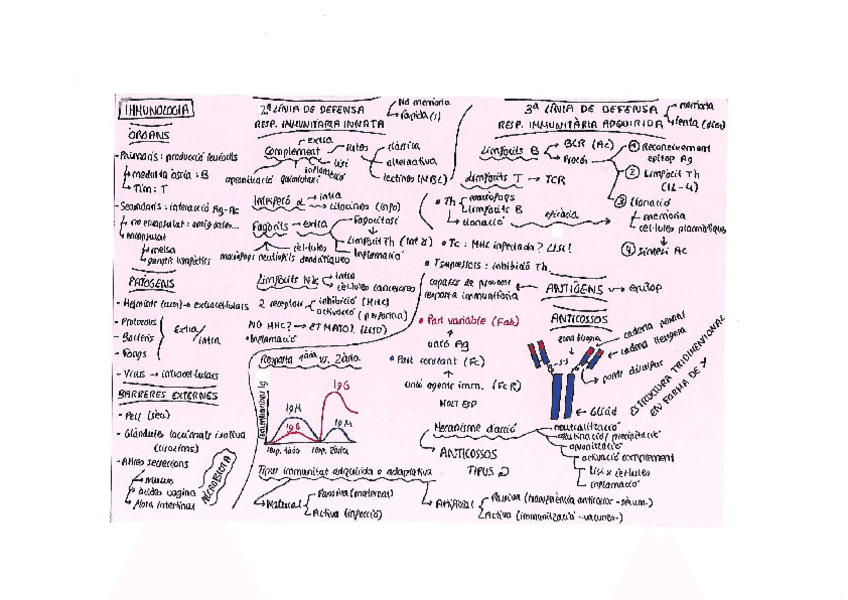 IMMUNOLOGIA
ÒRGANS
- Primaris: producció leucòcits
medul·la òssia: B
Tim: T
- Secundaris: interacció Ag-Ac
no encapsulat: amígdales...
encapsulat
melsa
ganglis limfàtics
PATÒGENS
- Helmints (cucs) → extracel·lulars
- Protozous
- Bacteris
- Fongs
Extra/
intra
- Virus → intracel·lulars
BARRERES EXTERNES
- Pell (sèu)
- Glàndules lacrimals i saliva
(lisozims)
- Altres secrecions
mucus
àcides vagina
flora intestinal
MICROBIOTA
2ª LÍNIA DE DEFENSA
RESP. IMMUNITÀRIA INNATA
No memòria
Ràpida
extra
Complement
rutes
clàssica
alternativa
lectines (MBL)
lisi
inflamació
opsonització
quimiotaxi
Interferó α
intra
Fagòcits → extra
Fagocitosi
Limfòcit Th
Inflamació
cèl·lules
macròfags neutròfils dendrítiques
Limfòcits NK
intra
cèl·lules canceroses
2 receptors
inhibició (MHC)
activació (perforina)
NO MHC? → ET MATO!
• Inflamació
Resposta 1ària vs. 2ària
Concentracions Ig
IgG
IgM
IgG
IgM
resp. 1ària
resp. 2ària
Tipus immunitat adquirida o adaptativa
Natural
Passiva (maternal)
Activa (infecció)
Artificial
Passiva (transferència anticossos -sèrum-)
Activa (immunització -vacunes-)
3ª LÍNIA DE DEFENSA
RESP. IMMUNITÀRIA ADQUIRIDA
memòria
lenta (dies)
Limfòcits B
BCR (Ac)
Procés
① Reconeixement
epítop Ag
② Limfòcit Th
(IL-4)
③ Clonació
memòria
cèl·lules plasmàtiques
④ Síntesi Ac
Limfòcits T → TCR
• Th
macròfags
Limfòcits B
clonació
eficàcia
• Tc: MHC infectada? LISI!
• Tsupressors: inhibició Th
capaços de provocar
resposta immunitària
ANTÍGENS → epítop
• Part variable (Fab)
unió Ag
• Part constant (Fc)
unió agente imm. (FcR)
MOLT ESP
ANTICOSSOS
zona
cadena pesant
cadena lleugera
S-S
ponts disulfur
Glúcid
ESTRUCTURA TRIDIMENSIONAL
EN FORMA DE Y
Mecanisme d'acció
ANTICOSSOS
TIPUS
neutralització
aglutinació/precipitació
opsonització
activació complement
lisi x cèl·lules
inflamació